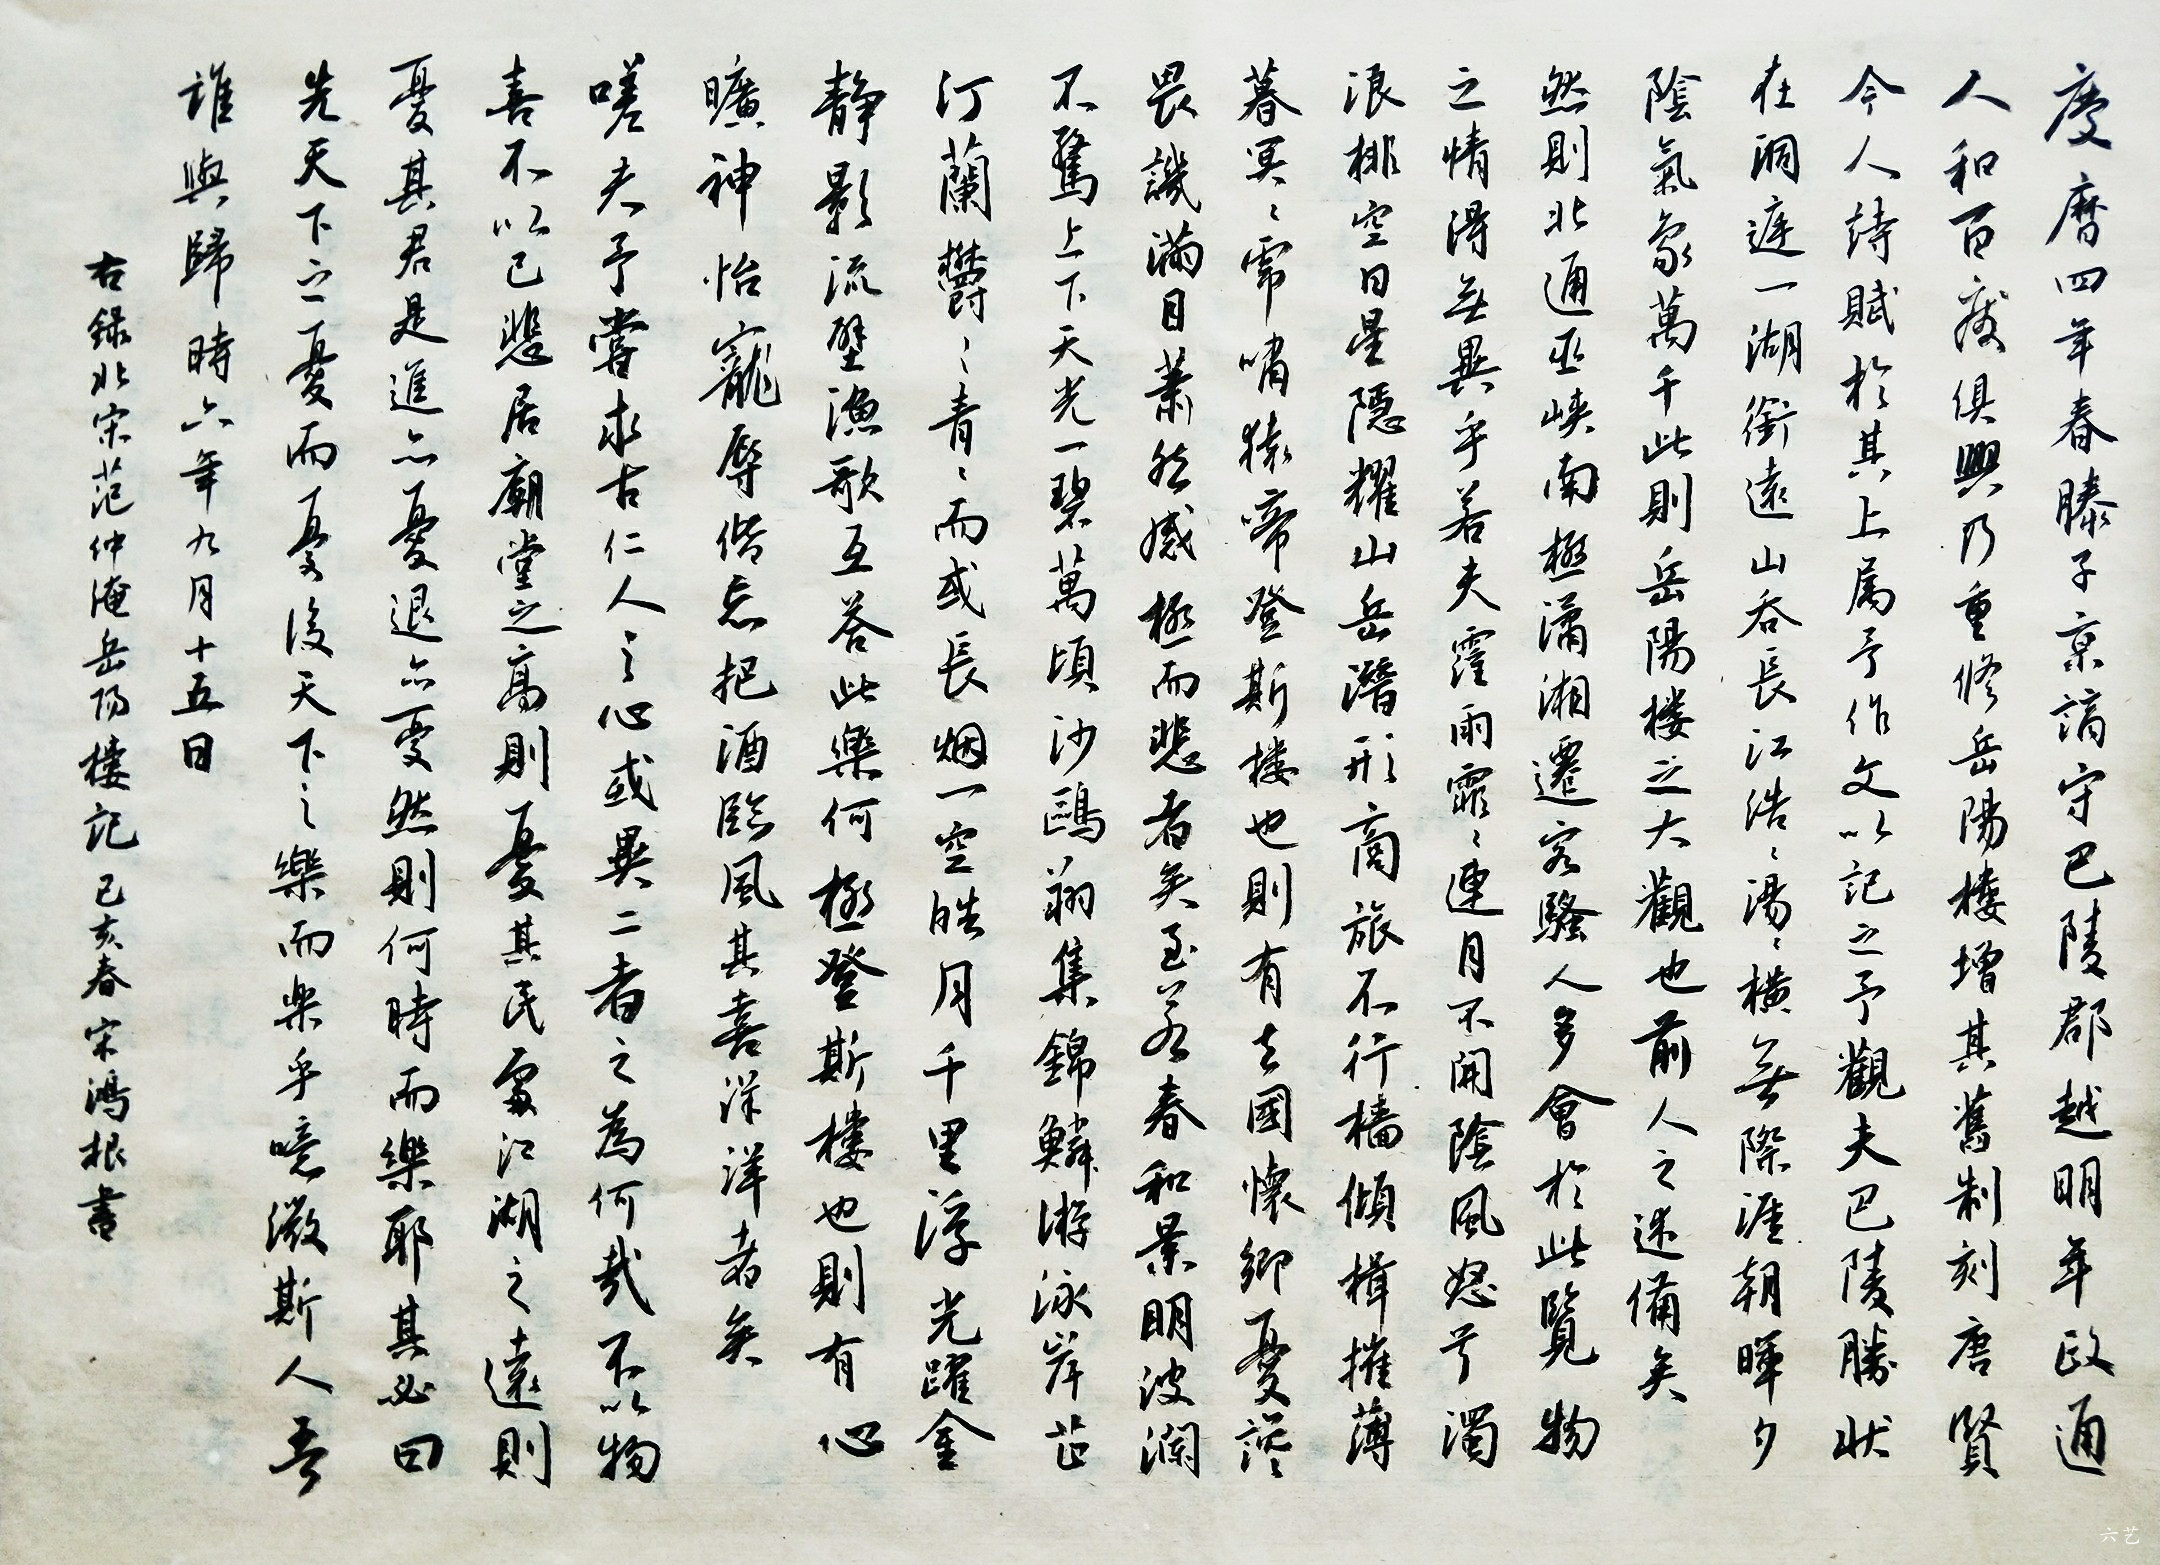 慶曆四年春滕子京謫守巴陵郡越明年政通
人和百廢俱興乃重修岳陽樓增其舊制刻唐賢
今人詩賦於其上属予作文以記之予觀夫巴陵勝状
在洞庭一湖銜遠山吞長江浩〻湯〻橫無際涯朝暉夕
陰氣象萬千此則岳陽楼之大觀也前人之述備矣
然則北通巫峽南極瀟湘遷客騷人多會於此覽物
之情得無異乎若夫霪雨霏〻連月不開陰風怒号濁
浪排空日星隱耀山岳潛形商旅不行檣傾楫摧薄
暮冥〻虎嘯猿啼登斯楼也則有去國懷鄉憂讒
畏譏滿目蕭然感極而悲者矣至若春和景明波瀾
不驚上下天光一碧萬頃沙鷗翔集錦鱗游泳岸芷
汀蘭欝〻青〻而或長烟一空皓月千里浮光躍金
静影流壁漁歌互答此樂何極登斯樓也則有心
曠神怡寵辱偕忘把酒臨風其喜洋洋者矣
嗟夫予嘗求古仁人之心或異二者之為何哉不以物
喜不以己悲居廟堂之高則憂其民處江湖之遠則
憂其君是進亦憂退亦憂然則何時而樂耶其必曰
先天下之憂而憂後天下之樂而楽乎噫微斯人吾
誰與歸時六年九月十五日
右録北宋范仲淹岳陽樓記己亥春宋鴻根書
六艺